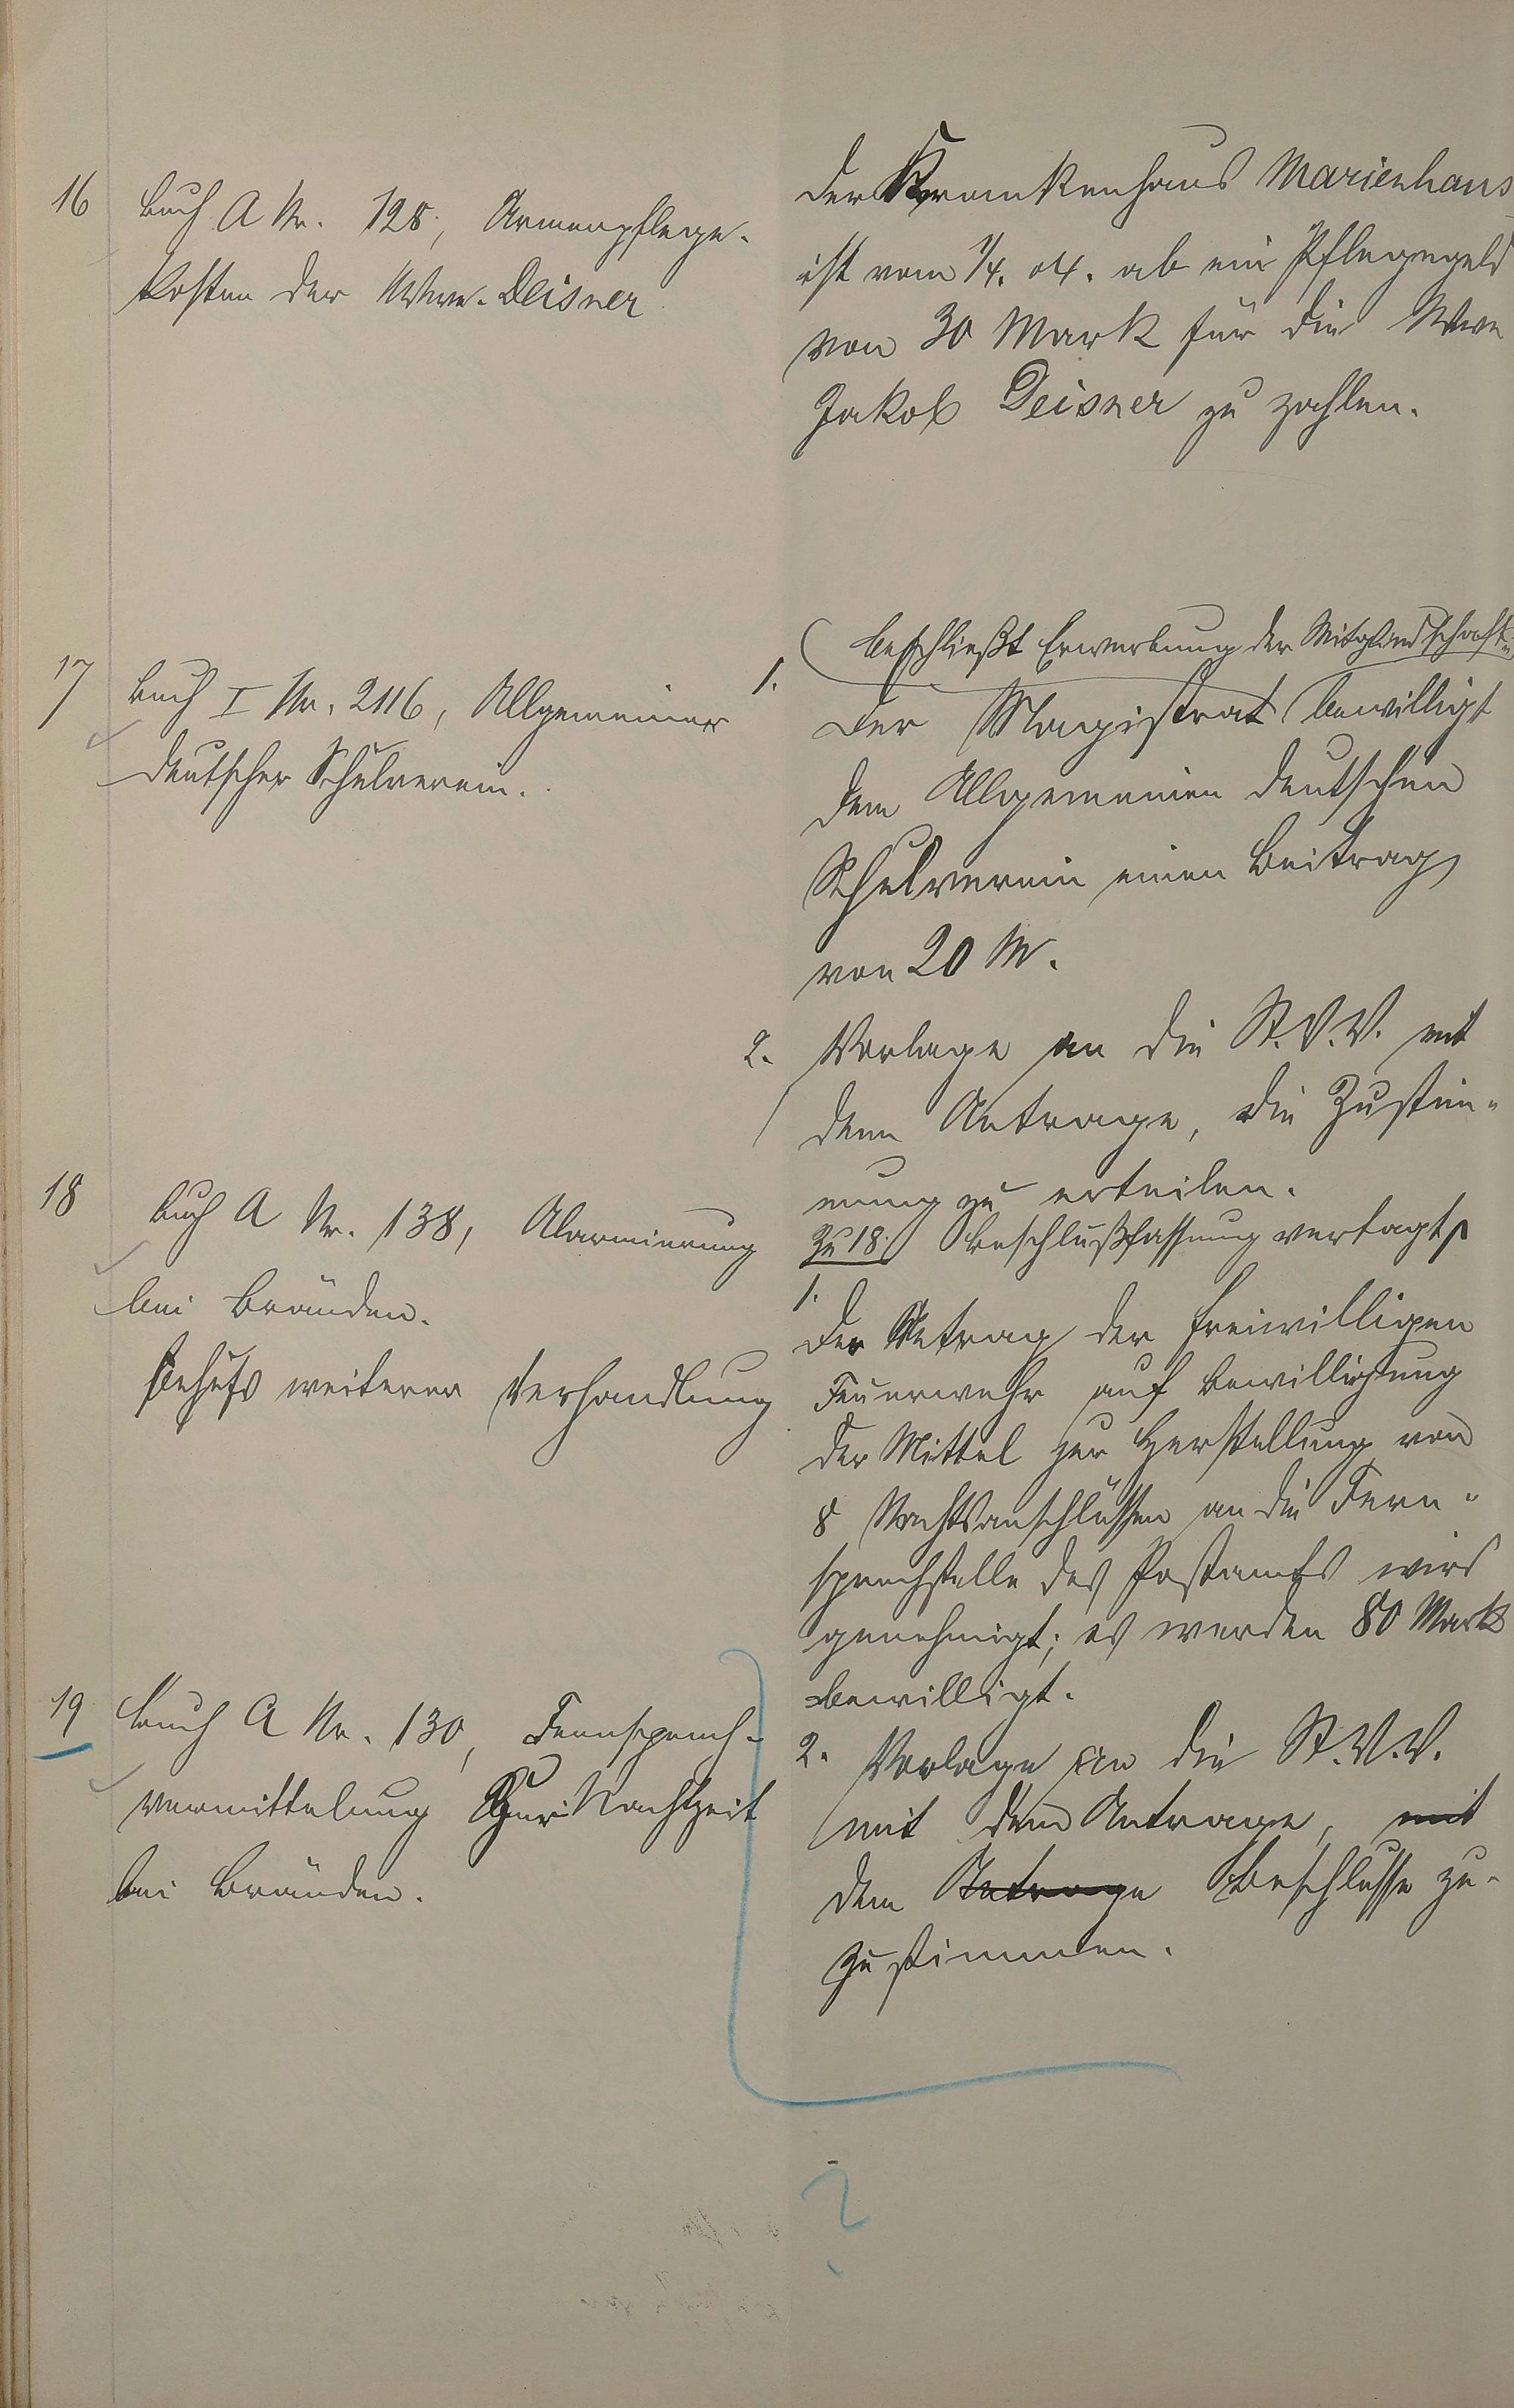 16
Buch A Nr. 128, Armenpflege-
kosten der Wwe. Deisner
Der Krankenhaus Marienhaus
ist vom 1/4. 04. ab ein Pflegegeld
von 30 Mark für die Wwe
Jakob Deisner zu zahlen.
17
Buch I Nr. 2116, Allgemeiner
deutscher Schulverein.
beschließt Erwerbung der Mitgliedschaft u.
1. Der Magistrat bewilligt
dem Allgemeinen deutschen
Schulverein einen Beitrag
von 20 M.
2. Vorlage an die St.V.V. mit
dem Antrage, die Zustim-
mung zu erteilen.
18
Buch A Nr. 138, Alarmierung
bei Bränden.
behufs weiterer Verhandlung
Zu 18. Beschlußfassung vertagt
1.
Der Antrag der freiwilligen
Feuerwehr auf Bewilligung
der Mittel zur Herstellung von
8 Nachtsanschlüssen an die Fern-
sprechstelle des Postamts wird
genehmigt; es werden 80 Mark
bewilligt.
19
Buch A Nr. 130, Fernsprech-
vermittelung zur Nachtzeit
bei Bränden.
2. Vorlage an die St.V.V.
mit dem Antrage, mit
dem Antrage Beschlusse zu-
zustimmen.
?